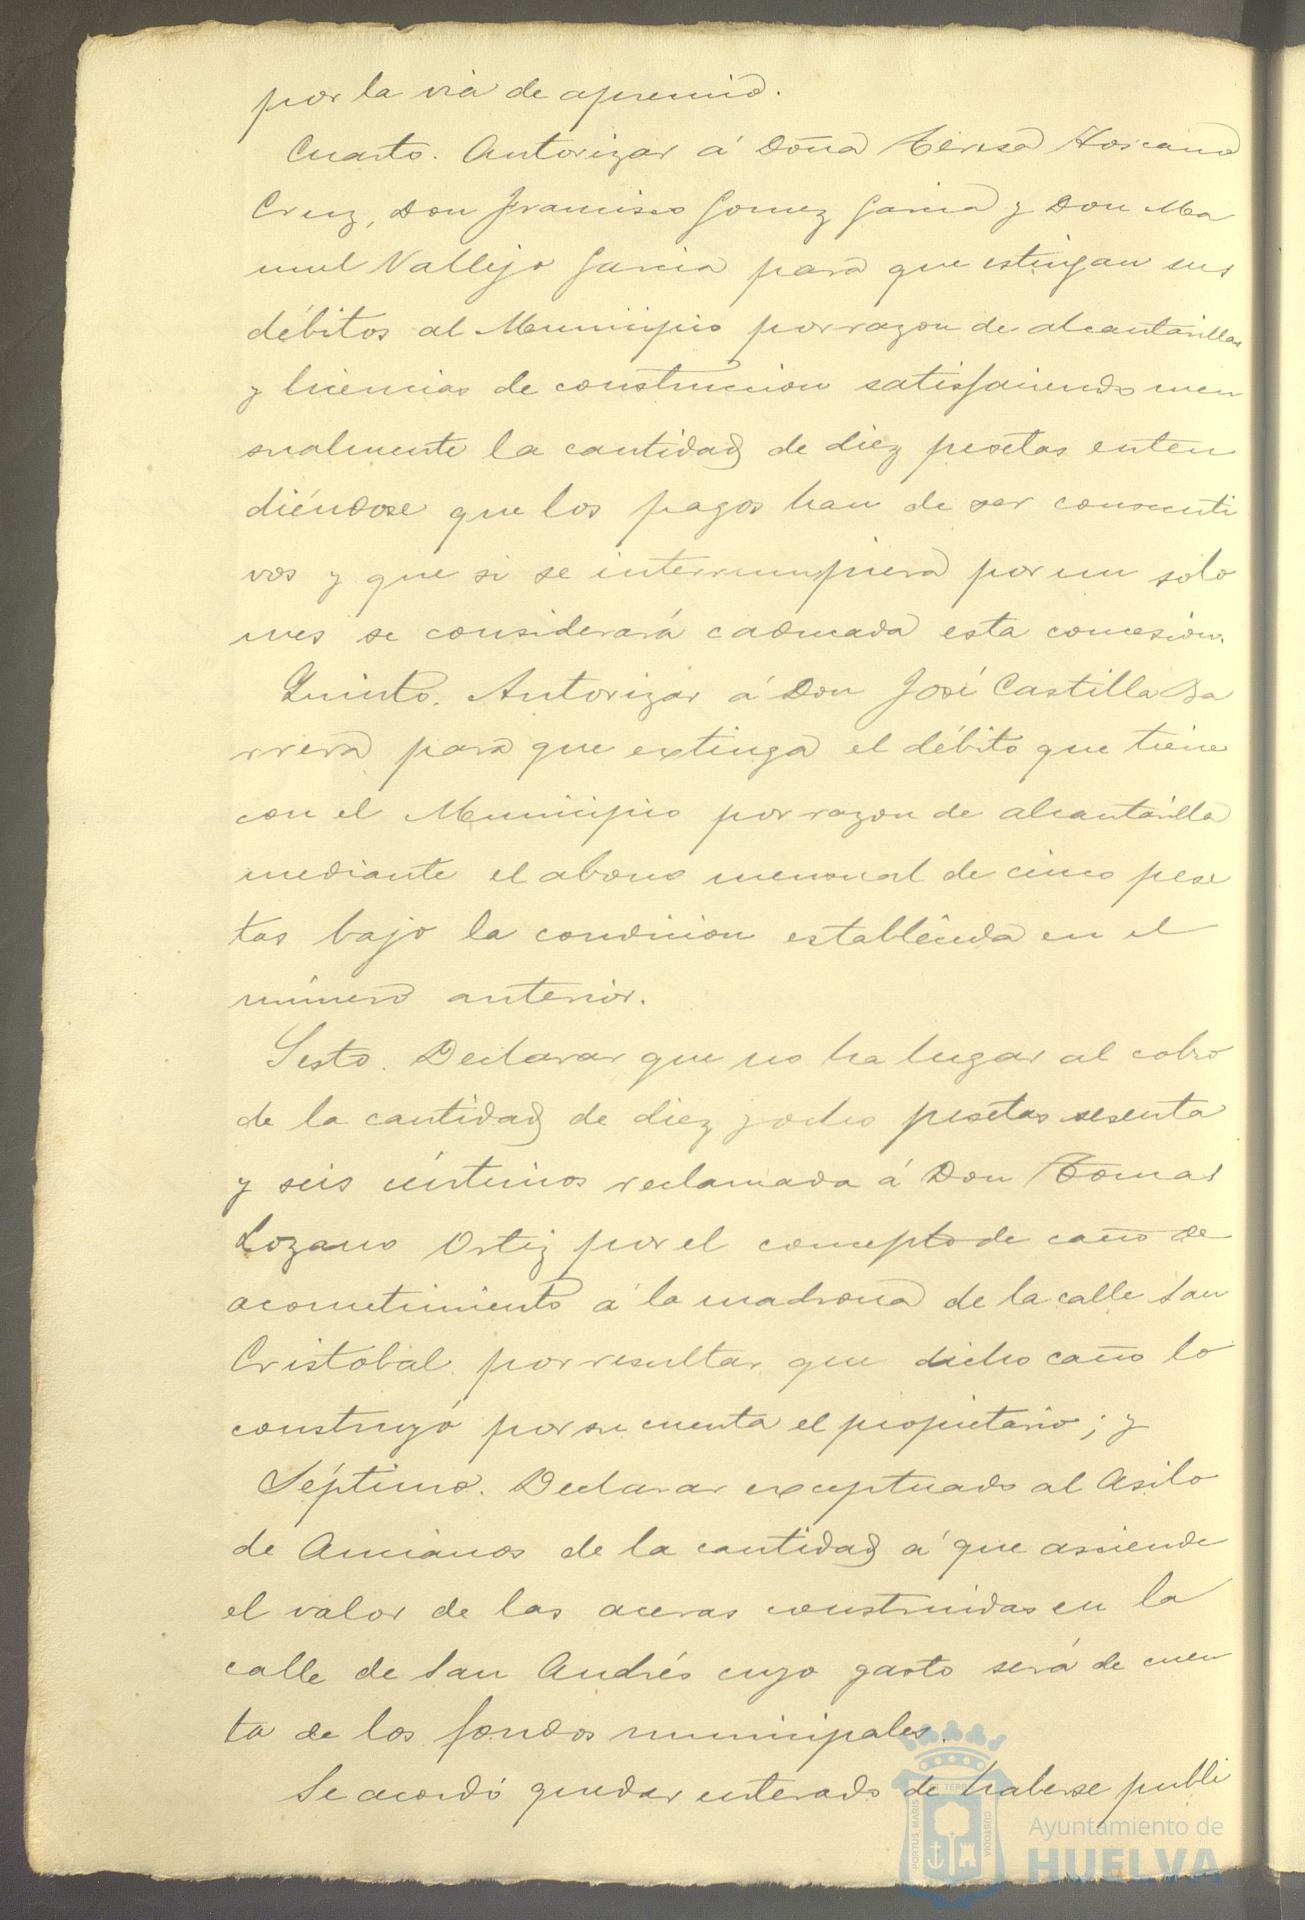 por la via de apremio.
Cuarto. Autorizar á Doña Teresa Toscano
Cruz, Don Francisco Gomez Garcia y Don Ma
nuel Vallejo Garcia para que estingan sus
débitos al Municipio por razon de alcantarillas
y licencias de construccion satisfaciendo men
sualmente la cantidad de diez pesetas enten
diéndose que los pagos han de ser consecuti
vos y que si se interrumpiera por un solo
mes se considerará caducada esta concesión.
Quinto. Autorizar á Don José Castilla Ba
rrera para que extinga el débito que tiene
con el Municipio por razon de alcantarilla
mediante el abono mensual de cinco pese
tas bajo la condicion establecida en el
número anterior.
Sesto. Declarar que no ha lugar al cobro
de la cantidad de diez y ocho pesetas sesenta
y seis céntimos reclamada á Don Tomas
Lozano Ortiz por el concepto de caño de
acometimiento á la madrona de la calle San
Cristobal por resultar que dicho caño lo
construyó por su cuenta el propietario; y
Séptimo. Declarar exceptuado al Asilo
de Ancianos de la cantidad á que asciende
el valor de las aceras construidas en la
calle de San Andrés cuyo gasto será de cuen
ta de los fondos municipales.
Se acordó quedar enterado de haberse publi
PORTUS MARIS
ET TERRAE
CUSTODIA
Ayuntamiento de
HUELVA